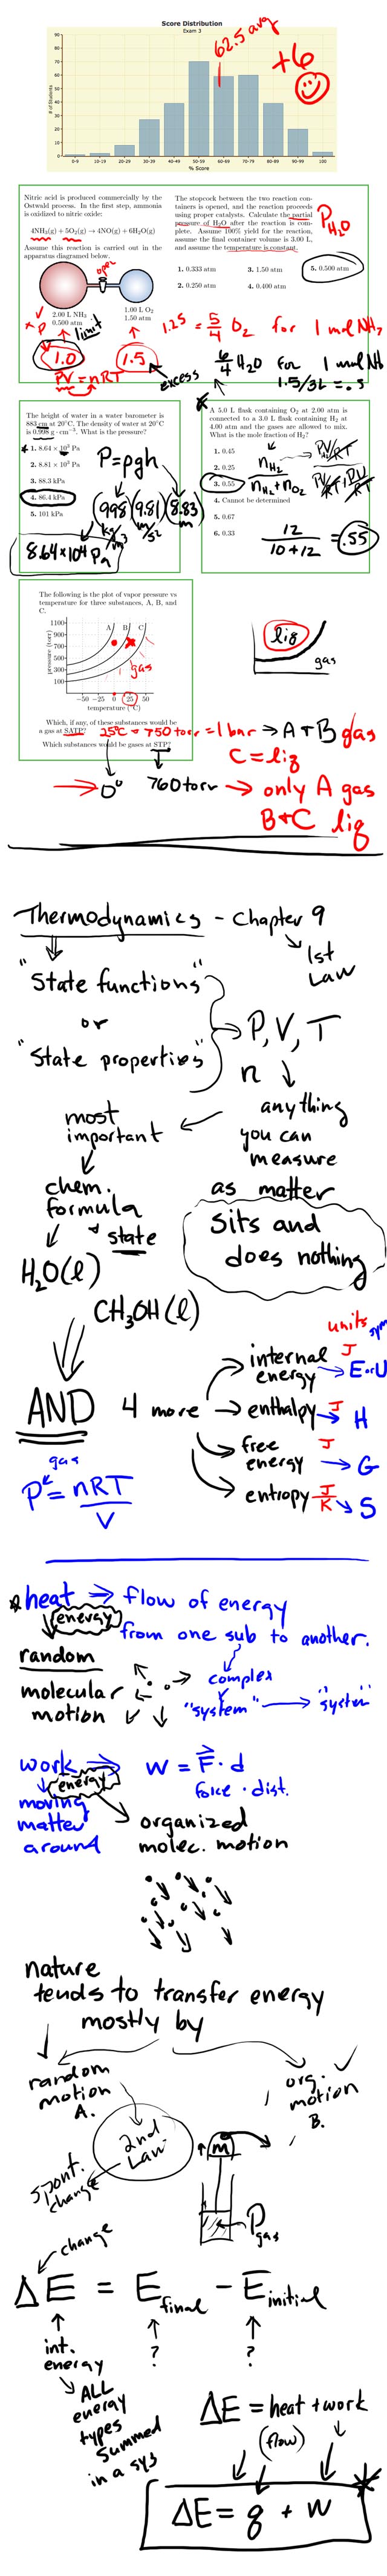 Score Distribution
Exam 3
62.5 avg
+6
# of Students
90
80
70
60
50
40
30
20
10
0
0-9 10-19 20-29 30-39 40-49 50-59 60-69 70-79 80-89 90-99 100
% Score
Nitric acid is produced commercially by the
Ostwald process. In the first step, ammonia
is oxidized to nitric oxide:
4NH₃(g) + 5O₂(g) → 4NO(g) + 6H₂O(g)
Assume this reaction is carried out in the
apparatus diagramed below.
open
2.00 L NH₃
0.500 atm
1.00 L O₂
1.50 atm
limit
1.0
1.5
PV = nRT
excess
The stopcock between the two reaction con-
tainers is opened, and the reaction proceeds
using proper catalysts. Calculate the partial
pressure of H₂O after the reaction is com-
plete. Assume 100% yield for the reaction,
assume the final container volume is 3.00 L,
and assume the temperature is constant.
P H₂O
1. 0.333 atm
2. 0.250 atm
3. 1.50 atm
4. 0.400 atm
5. 0.500 atm
1.25 = 5/4 O₂ for 1 mol NH₃
6/4 H₂O for 1 mol NH₃
1.5/3L = .5
The height of water in a water barometer is
883 cm at 20°C. The density of water at 20°C
is 0.998 g · cm⁻³. What is the pressure?
1. 8.64 × 10³ Pa
2. 8.81 × 10³ Pa
3. 88.3 kPa
4. 86.4 kPa
5. 101 kPa
P=ρgh
(998)(9.81)(8.83)
kg/m³ m/s² m
8.64×10⁴ Pa
A 5.0 L flask containing O₂ at 2.00 atm is
connected to a 3.0 L flask containing H₂ at
4.00 atm and the gases are allowed to mix.
What is the mole fraction of H₂?
1. 0.45
2. 0.25
3. 0.55
4. Cannot be determined
5. 0.67
6. 0.33
n H₂
n H₂ + n O₂
PV/RT
PV/RT + PV/RT
12
10+12
= .55
The following is the plot of vapor pressure vs
temperature for three substances, A, B, and
C.
pressure (torr)
1100
900
700
500
300
100
A B C
gas
−50 −25 0 25 50
temperature (°C)
liq
gas
Which, if any, of these substances would be
a gas at SATP?
25°C + 750 torr = 1 bar ⇒ A + B gas
C = liq
Which substances would be gases at STP?
0° 760 torr → only A gas
B+C liq
Thermodynamics - Chapter 9
1st
Law
"State functions"
or
"State properties"
P, V, T
n
anything
you can
measure
as matter
sits and
does nothing
most
important
chem.
formula
+ state
H₂O(l)
CH₃OH(l)
units
AND 4 more
internal energy J → E or U
enthalpy J → H
free energy J → G
entropy J/K → S
gas
P = nRT
V
heat ⇒ flow of energy
from one sub to another.
energy
random
molecular
motion
complex
"system" → "system"
work ⇒ w = F · d
force · dist.
energy
moving
matter
around
organized
molec. motion
nature
tends to transfer energy
mostly by
random
motion
A.
org.
motion
B.
2nd
Law
spont.
change
m
P gas
change
ΔE = E final − E initial
int.
energy
?
?
ALL
energy
types
summed
in a sys
ΔE = heat + work
(flow)
ΔE = q + w